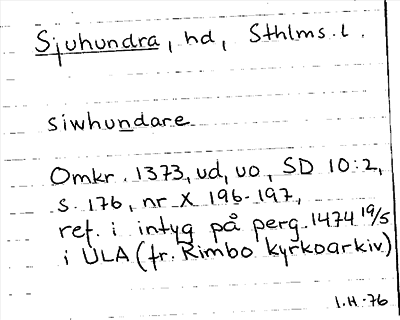 Sjuhundra, hd, Sthlms. l.
siwhundare
Omkr. 1373, ud, uo, SD 10:2,
s. 176, nr X 196-197,
ref. i intyg på perg. 1474 19/5
i ULA (fr. Rimbo kyrkoarkiv)
I.H.-76